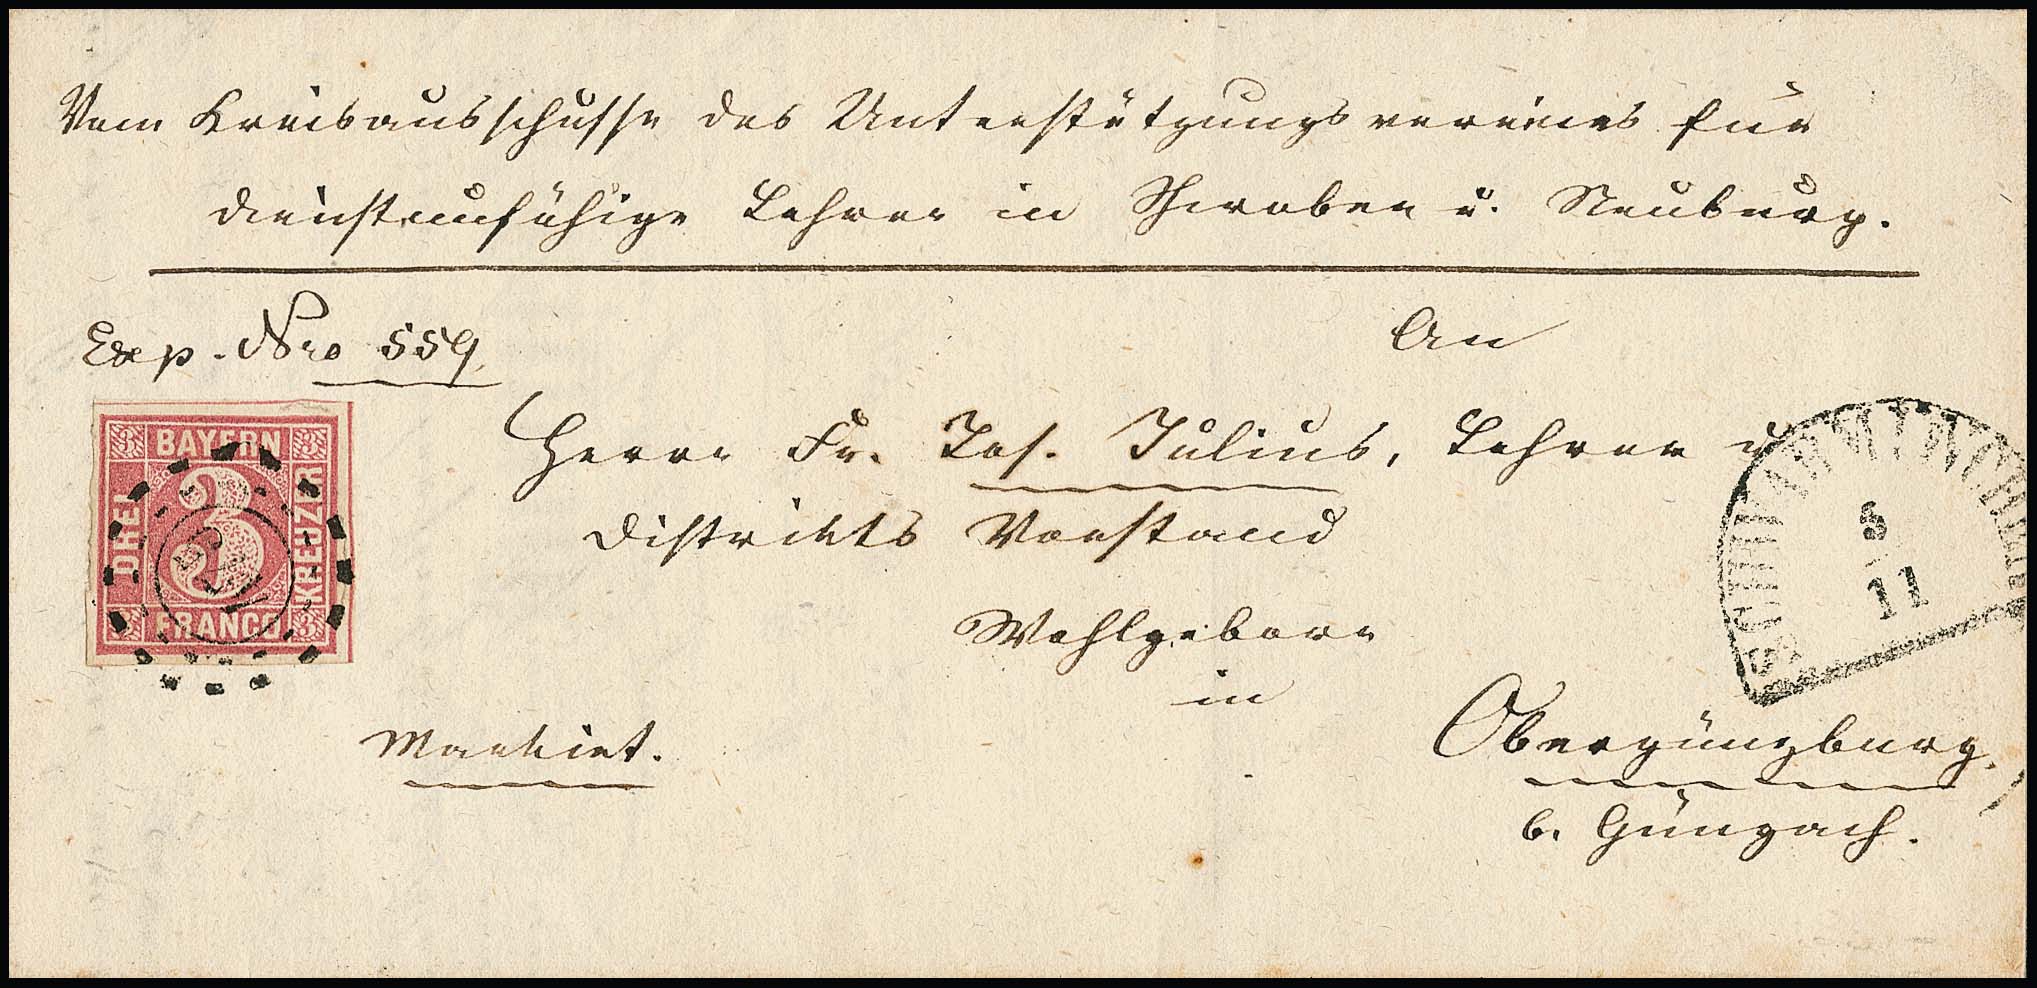 Vom Kreisausschusse des Unterstützungsvereines für
dienstunfähige Lehrer in Schwaben u. Neuburg.
Exp. Nro 559.
An
Herrn Fr. Jos. Julius, Lehrer u.
Distrikts Vorstand
Wohlgeborn
in
Obergünzburg,
b. Günzach.
Markirt.
BAYERN
DREI
KREUZER
FRANCO
3
3
3
3
3
8
11